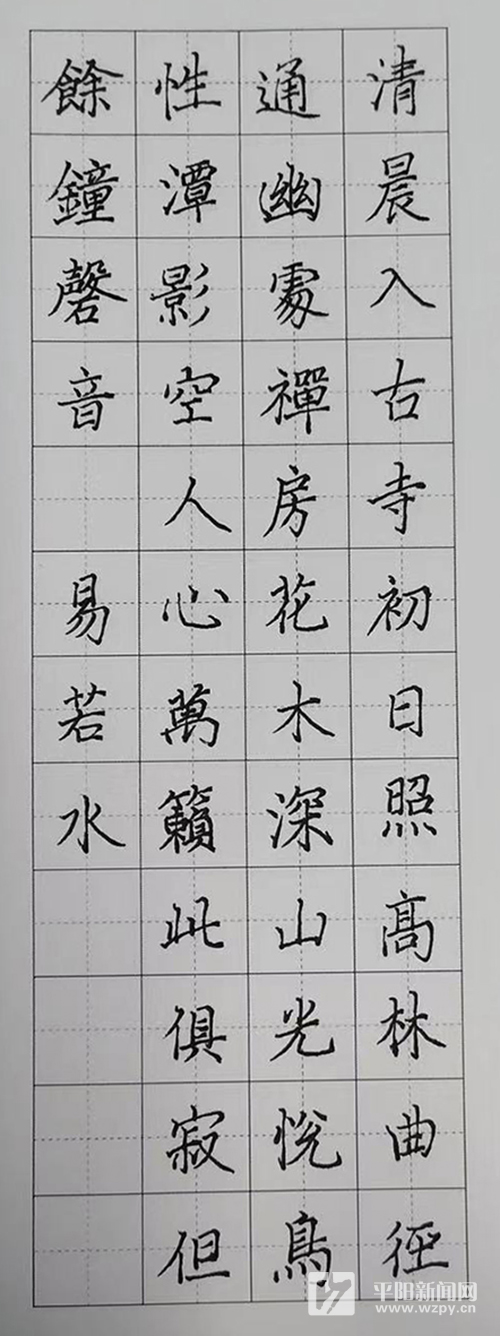 清晨入古寺初日照高林曲徑
通幽處禪房花木深山光悅鳥
性潭影空人心萬籟此俱寂但
餘鐘磬音 易若水
平阳新闻网
www.wzpy.cn